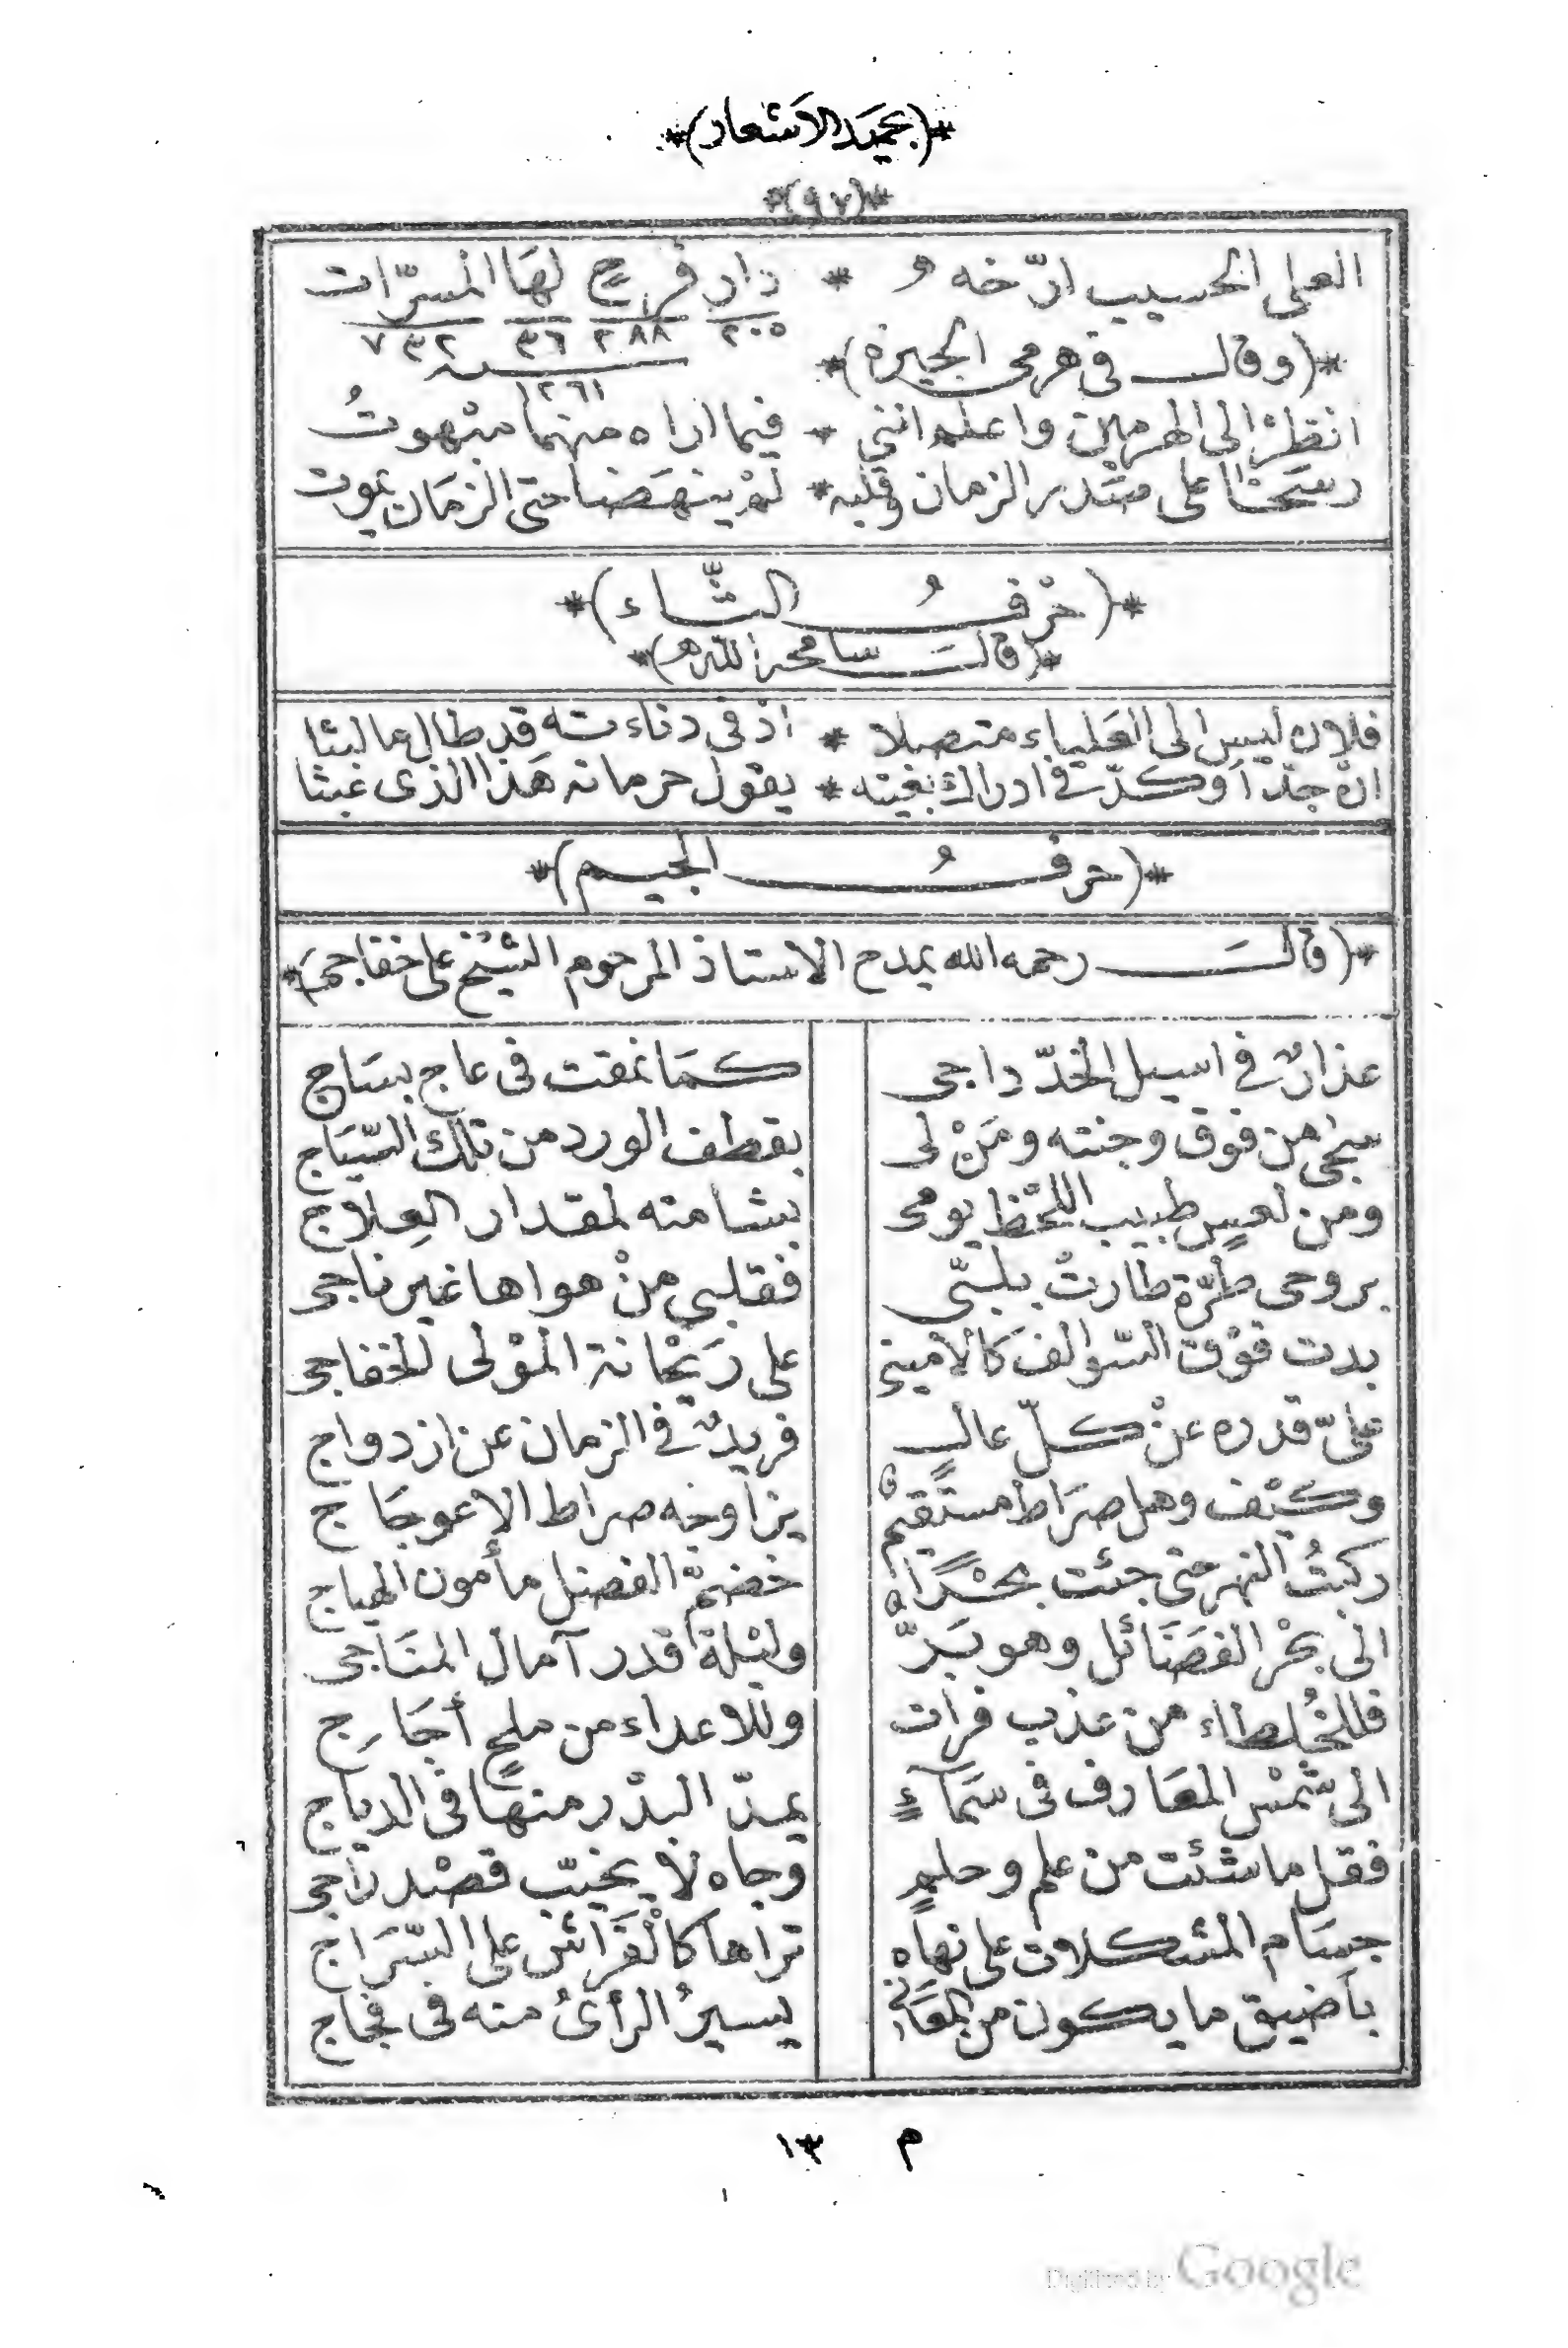 *(بحميد الاشعار)*
*(٩٧)*
العلى الحسيب ارّخه و * دار فرح لها المسرّات
٢٠٥ ٢٨٨ ٣٦ ٧٣٢
*(وقال فى هرمى الجيزة)*
١٢٦١
انظر الى الهرمين واعلم اننى * فيما اراه منهما مبهوتُ
رسخا على صدر الزمان وقلبه * لم ينهضا حتى الزمان يموت
*(حرفُ الثّاء)*
*(قال سامحه الله)*
فلان ليس الى العلياء متصلا * اذ فى دناءته قد طال ما لبثا
ان جدّ أو كدّ فى ادراك بغيته * يقول حرمانه هذا الذى عبثا
*(حرفُ الجيم)*
*(قال رحمه الله يمدح الاستاذ المرحوم الشيخ على خفاجى)*
عذارٌ فى اسيل الخدّ داجى كما نمقت فى عاج بساج
سجى من فوق وجنته ومَنْ لى بقطف الورد من تلك السّياج
ومن لعسٍ طبيب اللحظ يومى بشامته لمقدار العِلاج
بروحى طرّة طارتْ بلبّى فقلبى منْ هواها غير ناجى
بدت فوْق السّوالف كالامينى على رَيْحانة الموْلى الخفاجى
علىّ قدره عنْ كلّ عالٍ فريدٌ فى الزمان عن ازدواج
وكيْف وهل صرَاط مستقيمٌ يزاوجه صراط الاعوجاج
ركبتُ النهر حتى جئت بحْرًا خضمّ الفضل مأمون الهياج
الى بحْر الفضائل وهو بَرّ وليْلة قدر آمال المنَاجى
فللخُلطاء من عذب فرات وللاعداء من ملحٍ أجَاج
الى شمْس المعَارف فى سَمَآءٍ يمدّ البدْر منها فى الدياج
فقل ما شئت من علم وحلمٍ وجاه لا يخيّب قصْد راجى
جسَام المشكلات على نهاه تراها كالْفَرَاش على السّرَاج
بأضيق ما يكون من المعَانى يسيرُ الرأىُ منه فى فجاج
م ١٣
Digitized by Google